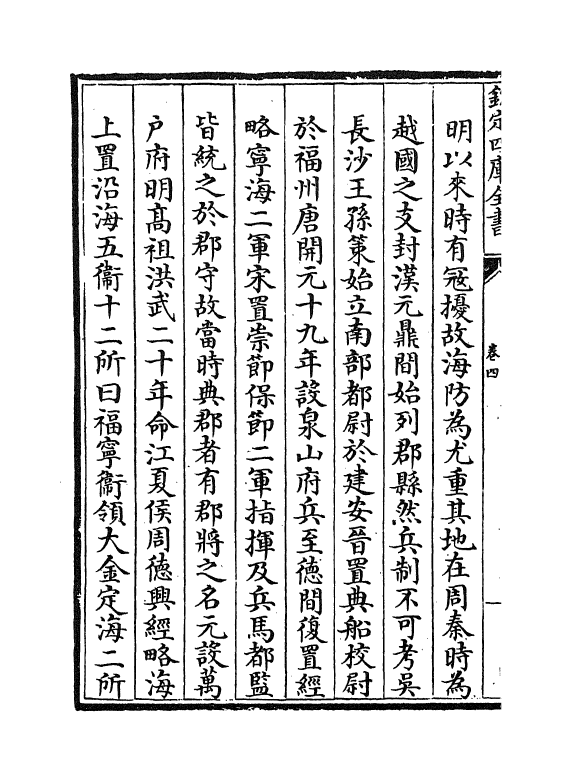 欽定四庫全書
卷四
明以來時有冦擾故海防為尤重其地在周秦時為
越國之支封漢元鼎間始列郡縣然兵制不可考吳
長沙王孫策始立南部都尉於建安晉置典船校尉
於福州唐開元十九年設泉山府兵至德間復置經
略寧海二軍宋置崇節保節二軍指揮及兵馬都監
皆統之於郡守故當時典郡者有郡將之名元設萬
户府明髙祖洪武二十年命江夏侯周徳興經略海
上置沿海五衞十二所曰福寧衞領大金定海二所